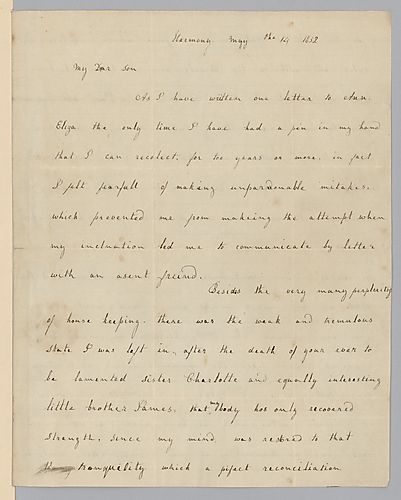 Harmony May the 14 1832
My Dear Son
As I have written one letter to Ann
Eliza. the only time I have had a pen in my hand
that I can recolect, for too years or more. in fact
I felt fearfull of making unpardonable mistakes.
which prevented me from makeing the attempt when
my inclination led me to communicate by letter
with an asent freind.
Besides the very many perplexitys
of house keeping. there was the weak and tremulous
state I was left in, after the death of your ever to
be lamented sister Charlotte and equally interesting
little brother James. that my body has only recovered
strength, since my mind was restored to that
tranquility which a pifect reconciliation